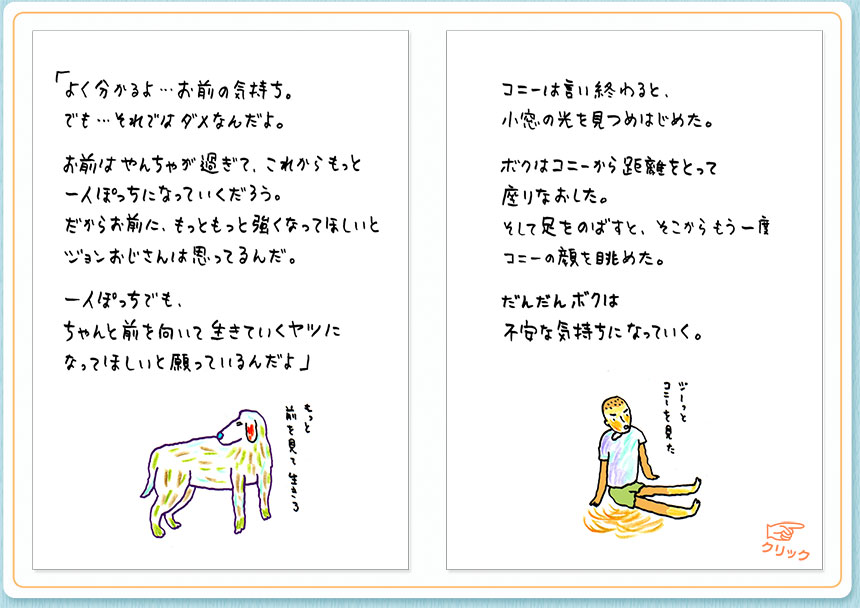 「よく分かるよ…お前の気持ち。
でも…それではダメなんだよ。
お前はやんちゃが過ぎて、これからもっと
一人ぽっちになっていくだろう。
だからお前に、もっともっと強くなってほしいと
ジョンおじさんは思ってるんだ。
一人ぽっちでも、
ちゃんと前を向いて生きていくヤツに
なってほしいと願っているんだよ」
もっと
前を見て生きろ
コニーは言い終わると、
小窓の光を見つめはじめた。
ボクはコニーから距離をとって
座りなおした。
そして足をのばすと、そこからもう一度
コニーの顔を眺めた。
だんだんボクは
不安な気持ちになっていく。
ジーっと
コニーを見た
クリック